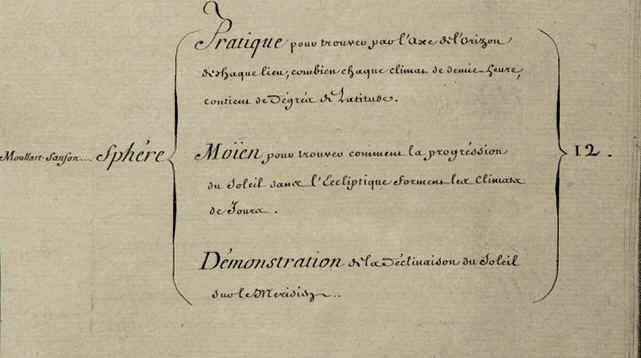 Pratique pour trouver par l'Axe de l'orizon
de chaque lieu, combien chaque climat de demie-heure,
contient de Dégréz de Latitude.
Moullart-Sanson... Sphére
Moïen pour trouver comment la progréssion
du Soleil dans l'Eccliptique forment les Climats
de Jours.
12.
Démonstration de la Déclinaison du Soleil
sur le Meridien..